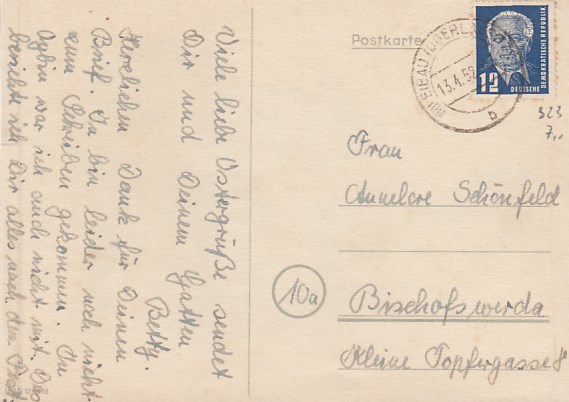 Viele liebe Ostergrüße sendet
Dir und Deinem Gatten
Betty.
Herzlichen Dank für Deinen
Brief. Ich bin leider noch nicht
zum Schreiben gekommen. In
Oybin war ich auch nicht mit. Das
bericht ich Dir alles nach dem Fest
Postkarte
EIBAU (OBERL
13.4.52
b
12
DEUTSCHE
DEMOKRATISCHE REPUBLIK
323
7,-
Frau
Annelore Schönfeld
10a
Bischofswerda
Kleine Töpfergasse 8